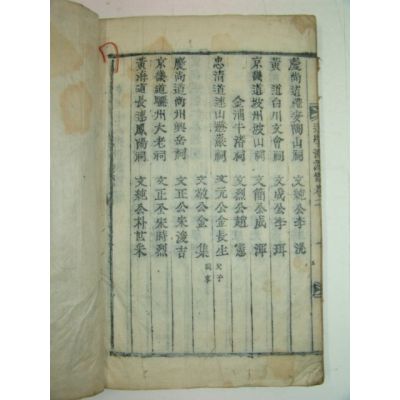 慶尚道禮安陶山祠 文純公李滉
黃 道白川文會祠 文成公李珥
京畿道坡州坡山祠 文簡公成渾
金浦牛渚祠 文烈公趙憲
忠清道連山遯巖祠 文元公金長生 父子
文敬公金集
慶尚道尚州興岳祠 文正公宋浚吉
京畿道驪州大老祠 文正公宋時烈
黃海道長連鳳陽祠 文純公朴世采